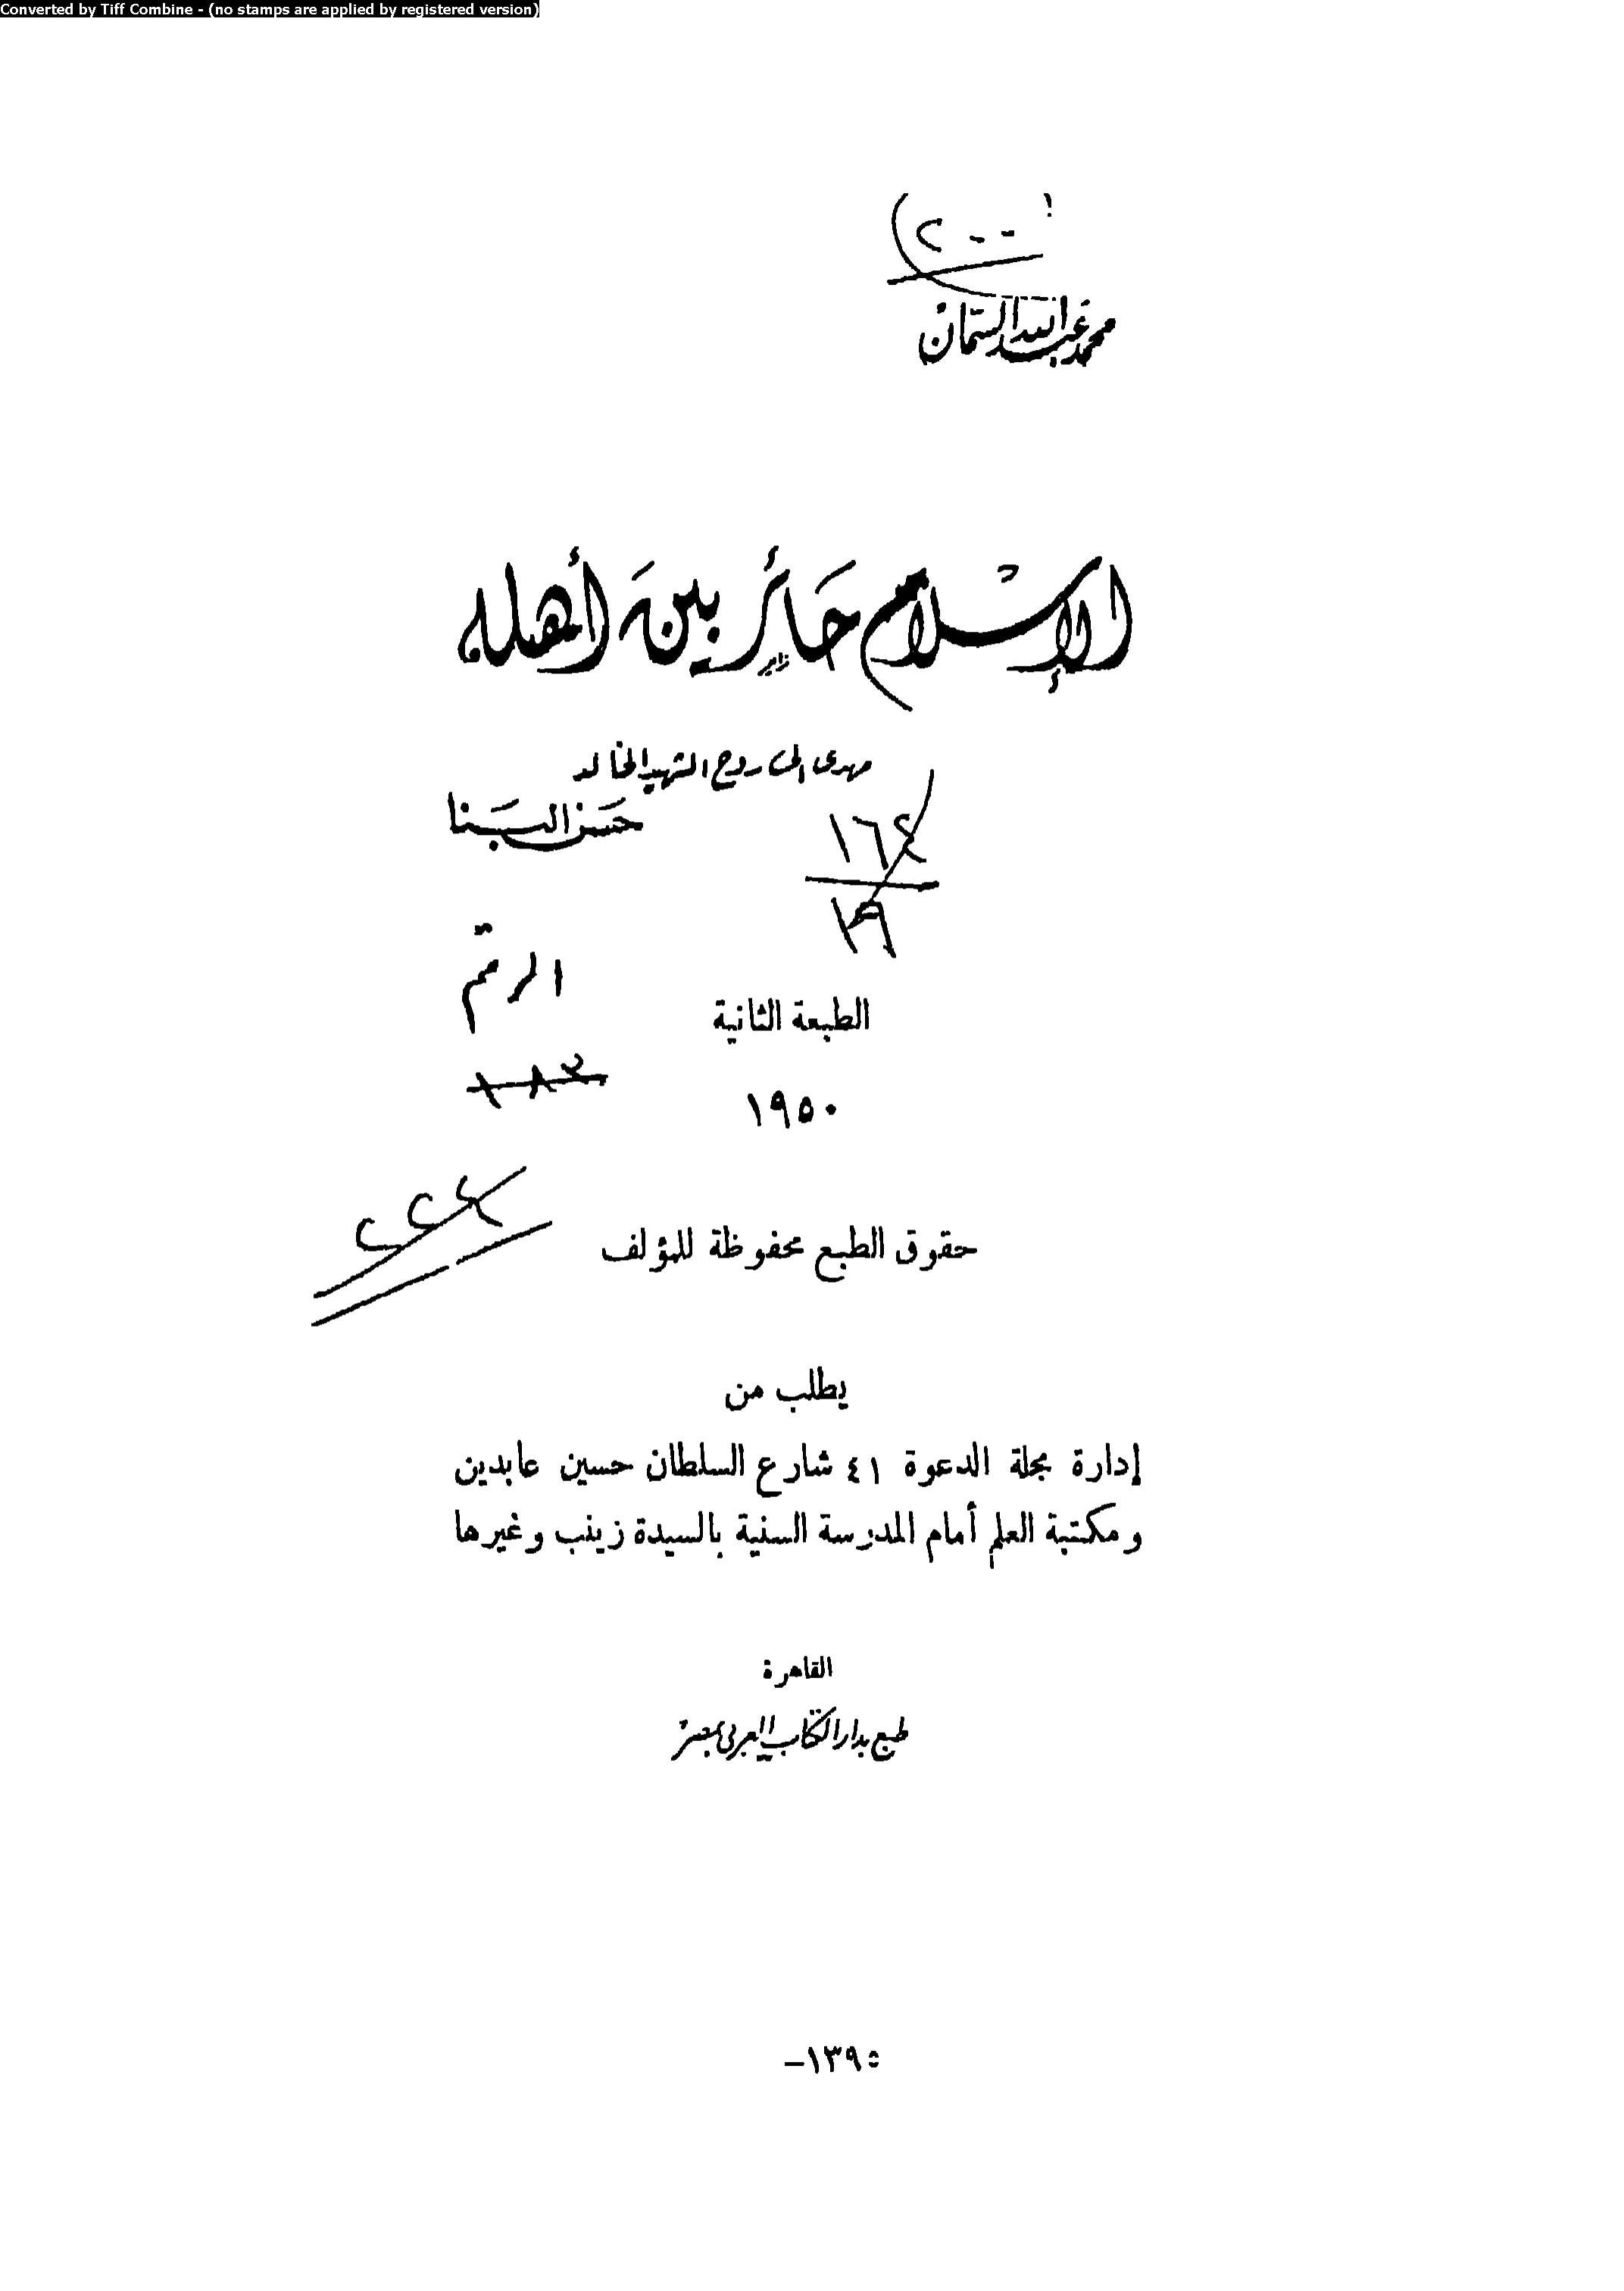 Converted by Tiff Combine - (no stamps are applied by registered version)
٢٠٠
محمد عبد الله السمان
الإسلام حَائر بينَ أهله
مهدى إلى روح الشهيد الخالد
حسَن البَنا
١٦٤
الرقم
الطبعة الثانية
١٨٢
١٩٥٠
٢٢٤
حقوق الطبع محفوظة للمؤلف
يطلب من
إدارة مجلة الدعوة ٤١ شارع السلطان حسين عابدين
ومكتبة العلم أمام المدرسة السنية بالسيدة زينب وغيرها
القاهرة
طبع بدار الكتاب العربى بمصر